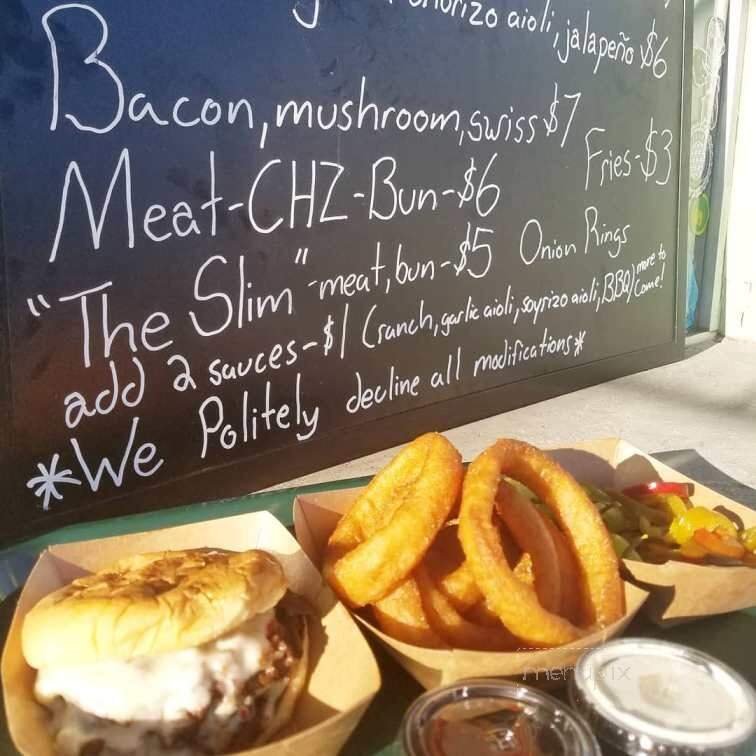 aioli, jalapeño $6
Bacon, mushroom, swiss $7
Fries-$3
Meat-CHZ-Bun-$6
"The Slim"-meat, bun-$5
Onion Rings
add 2 sauces-$1 (ranch, garlic aioli, soyrizo aioli, BBQ) more to come!
*We Politely decline all modifications*
menupix